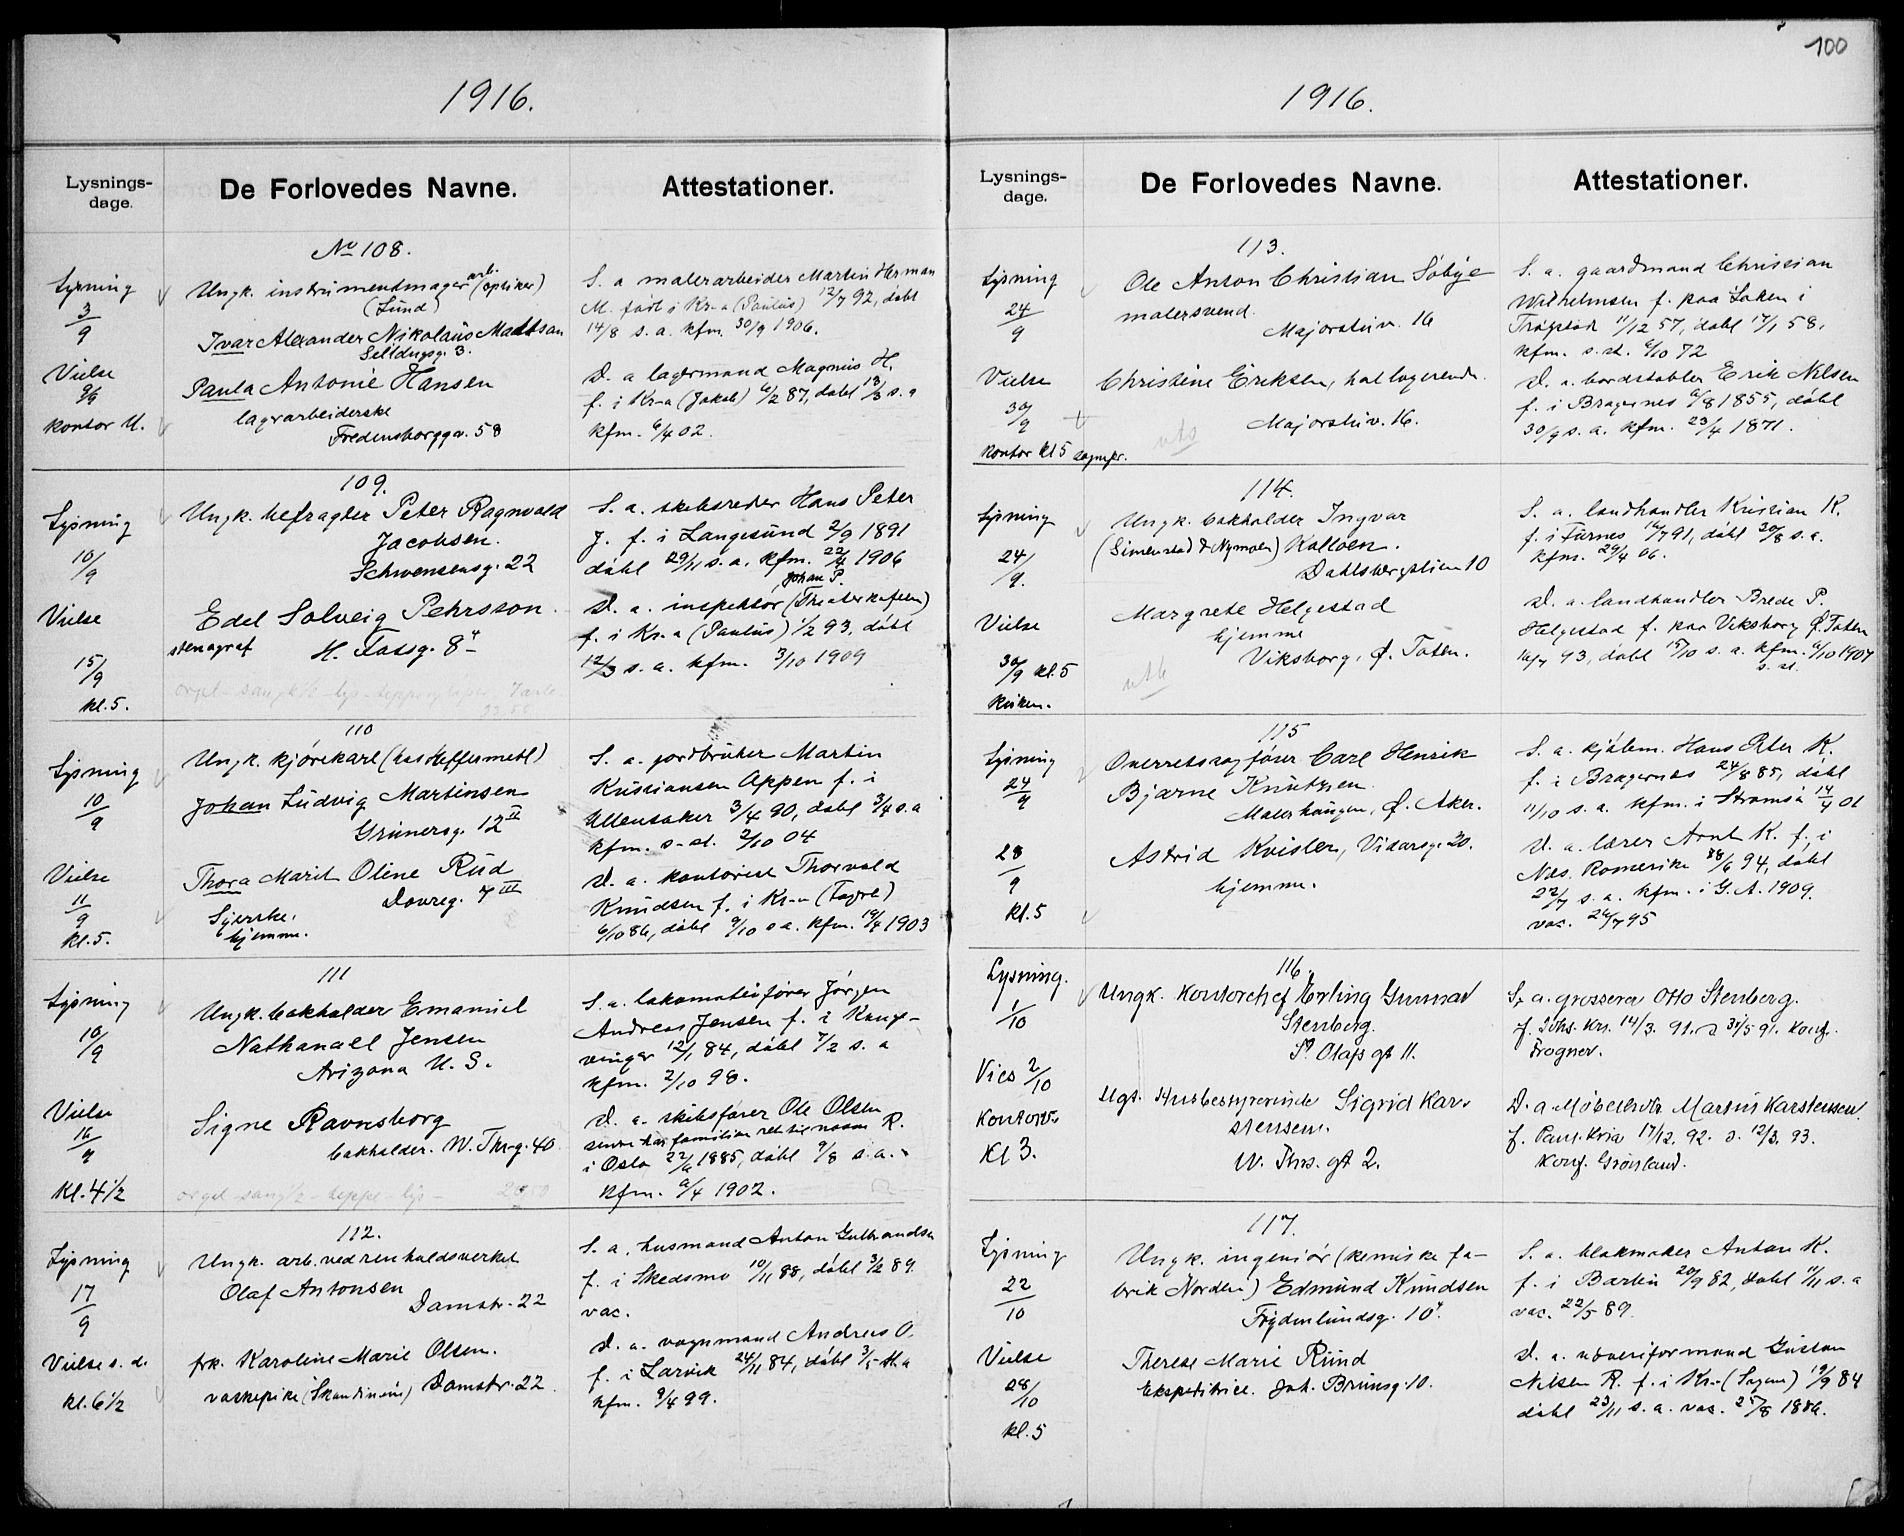 1916.
Lysnings-
dage.
De Forlovedes Navne.
Attestationer.
No 108.
Lysning
3/9
Vielse
9/9
kontor U.
Ungk. instrumentmager arb. (optiker)
(Lund)
Ivar Alexander Nikolaus Mattson
Selldugsg. 3.
Paula Antonie Hansen
lagerarbeiderske
Fredensborggv. 58
S. a malerarbeider Martin Herman
M. født i Kr-a (Paulus) 12/7 92, døbt
14/8 s. a. kfm. 30/9 1906.
D. a lagermand Magnus H.
f. i Kr-a (Jakob) 6/2 87, døbt 13/3 s. a
kfm. 6/4 02.
109.
Lysning
10/9
Vielse
15/9
kl. 5.
Ungk. befragter Peter Ragnvald
Jacobsen.
Schwensensg. 22
Edel Solveig Pehrsson.
stenograf H. Fossg. 8II
S. a. skibsreder Hans Peter
J. f. i Langesund 2/9 1891
døbt 29/11 s. a. kfm. 22/4 1906
Johan P.
D. a. inspektør (Theaterkafeen)
f. i Kr-a (Paulus) 1/2 93, døbt
12/3 s. a. kfm. 3/10 1909
110
Lysning
10/9
Vielse
11/9
kl. 5.
Ungk. kjørekarl (hos Heftermehl)
Johan Ludvig Martinsen
Grünersg. 12II
Thora Marit Oline Rud
Dovreg. 7III
Syerske.
hjemme.
S. a. jordbruker Martin
Kristiansen Appen f. i
Ullensaker 3/4 90, døbt 3/4 s. a
kfm. s-st. 2/10 04
D. a. kontorist Thorvald
Knudsen f. i Kr-a (Fagerb)
6/10 86, døbt 9/10 s a. kfm. 19/4 1903
111
Lysning
10/9
Vielse
16/9
Kl. 4 1/2
Ungk. bokholder Emanuel
Nathanael Jensen
Arizona U. S.
Signe Ravnsborg
bokholder. W. Thr-g. 40
orgel - sang 1/2 - teppe - lys -
S. a. lokomotivfører Jørgen
Andreas Jensen f. i Kongs-
vinger 12/1 84, døbt 7/2 s. a
kfm. 2/10 98.
D. a. skibsfører Ole Olsen
senere har familien ret til navn R.
i Oslo 22/6 1885, døbt 9/8 s. a.
kfm. 6/4 1902.
112.
Lysning
17/9
Vielse s. d.
kl. 6 1/2
Ungk. arb. ved renholdsverket
Olaf Antonsen
Damstr. 22
frk. Karoline Marie Olsen.
vaskepike (Skandinavie) Damstr. 22
S. a. husmand Anton Gulbrandsen
f. i Skedsmo 10/11 88, døbt 3/2 89.
vac.
D. a. vognmand Andreas O.
f. i Larvik 24/11 84, døbt 3/5 s. a
kfm. 9/4 99.
100
1916.
Lysnings-
dage.
De Forlovedes Navne.
Attestationer.
113.
Lysning
24/9
Vielse
30/9
kontor kl 5 sognepr.
Ole Anton Christian Søbye
malersvend.
Majorstuv. 16
Christine Eriksen, hotlogerende.
Majorstuv. 16.
S. a. gaardmand Christian
Wilhelmsen f. paa Soken i
Trøgstad 11/12 57, døbt 17/1 58.
kfm. s. st. 6/10 72
D. a. bordstabler Erik Nilsen
f. i Bragernes 6/8 1855, døbt
30/9 s. a. kfm. 23/4 1871.
114.
Lysning
24/9.
Vielse
30/9 kl. 5
Kirken.
Ungk. bokholder Ingvar
(Simenstad & Nymoen) Kolloen.
Dahlsbergstien 10
Margrete Helgestad
hjemme
Viksborg. Ø. Toten.
S. a. landhandler Kristian K.
f. i Furnes 16/7 91, døbt 30/8 s. a.
kfm. 29/4 06.
D. a. landhandler Brede P.
Helgestad f. paa Viksborg Ø. Toten
16/7 93, døbt 15/10 s. a. kfm. 6/10 1907
s. st.
115
Lysning
24/9
28/9
kl. 5
Overretssagfører Carl Henrik
Bjarne Knutzen
Malerhaugen, Ø. Aker.
Astrid Kvislen, Vidarsg. 20.
hjemme.
S. a. kjøbm. Hans Peter K.
f. i Bragernes 24/8 85, døbt
11/10 s. a. kfm. i Strømsø 14/4 01
D. a. lærer Arnt K. f. i
Nes. Romerike 28/6 94, døbt
22/7 s. a. kfm. i G. A. 1909.
vac. 26/7 95
116.
Lysning.
1/10
Vies 2/10
Kontoret
Kl 3.
Ungk. Kontorchef Erling Gunnar
Stenberg.
St. Olafs gt 11.
Ugt. Husbestyrerinde Sigrid Kar-
stensen.
W. Thrs. gt 2.
S. a. grosserer Otto Stenberg.
f. Johs. Krs. 14/3. 91. d 31/5 91. Konf.
Frogner.
D. a Møbelhdlr Martin Karstensen
f. Paul. Kria 17/12. 92. d. 12/3. 93.
Konf. Grønland.
117.
Lysning
22/10
Vielse
28/10
kl. 5
Ungk. ingeniør (kemiske fa-
brik Norden) Edmund Knudsen
Frydenlundsg. 10II.
Therese Marie Rund
Ekspeditrice. Joh. Brunsg. 10.
S. a. blokmaker Anton K.
f. i Borten 20/9 82, døbt 11/11 s. a
vac. 22/5 89.
D. a. verksformand Gustav
Nilsen R. f. i Kr-a (Sagene) 19/9 84
døbt 23/11 s. a. vac. 25/8 1886.